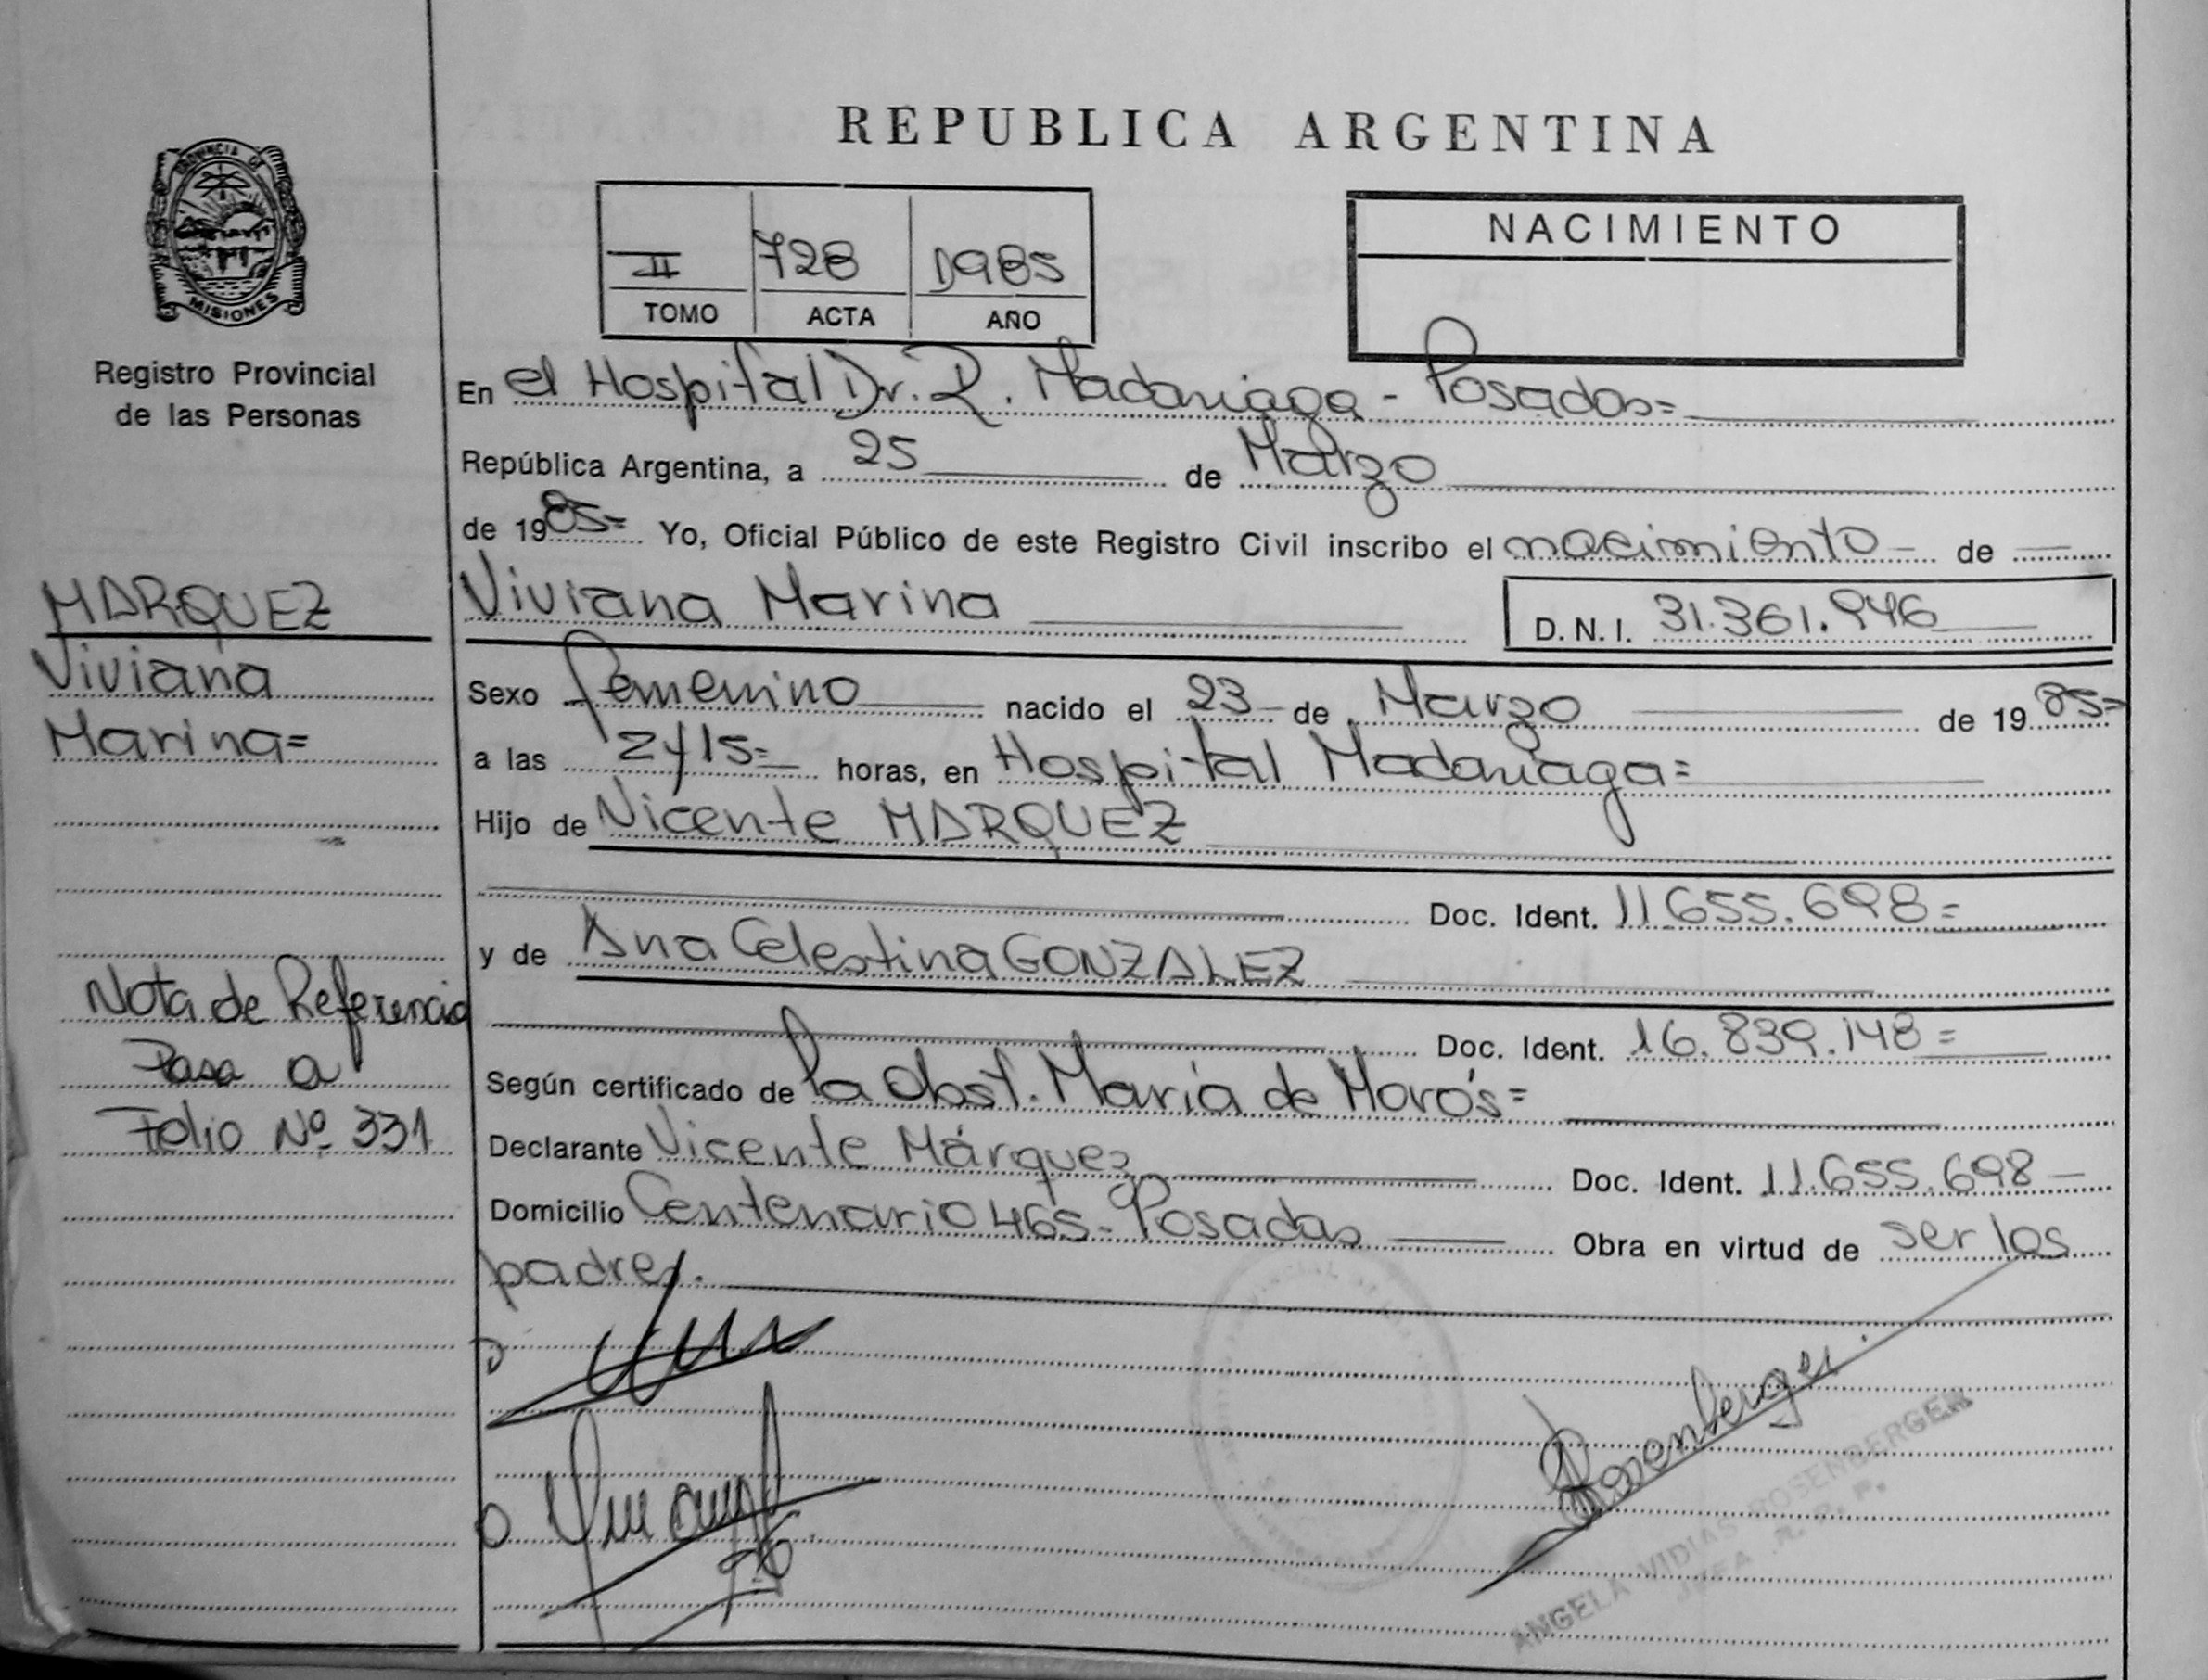 REPUBLICA ARGENTINA
PROVINCIA DE
MISIONES
Registro Provincial
de las Personas
II 728 1985
TOMO ACTA AÑO
NACIMIENTO
En el Hospital Dr. R. Madariaga - Posadas=
República Argentina, a 25 de Marzo
de 1985= Yo, Oficial Público de este Registro Civil inscribo el nacimiento - de
MARQUEZ
Viviana
Marina=
Viviana Marina
D. N. I. 31.361.946
Sexo femenino nacido el 23 de Marzo de 1985=
a las 2y15= horas, en Hospital Madariaga=
Hijo de Vicente MARQUEZ
Doc. Ident. 11.655.698=
y de Ana Celestina GONZALEZ
Doc. Ident. 16.839.148=
Nota de Referencia
Pasa a
Folio Nº 331
Según certificado de la Obst. María de Morós=
Declarante Vicente Márquez Doc. Ident. 11.655.698
Domicilio Centenario 465 - Posadas Obra en virtud de ser los
padres.
Rosenberger
ANGELA VIDIAS ROSENBERGER